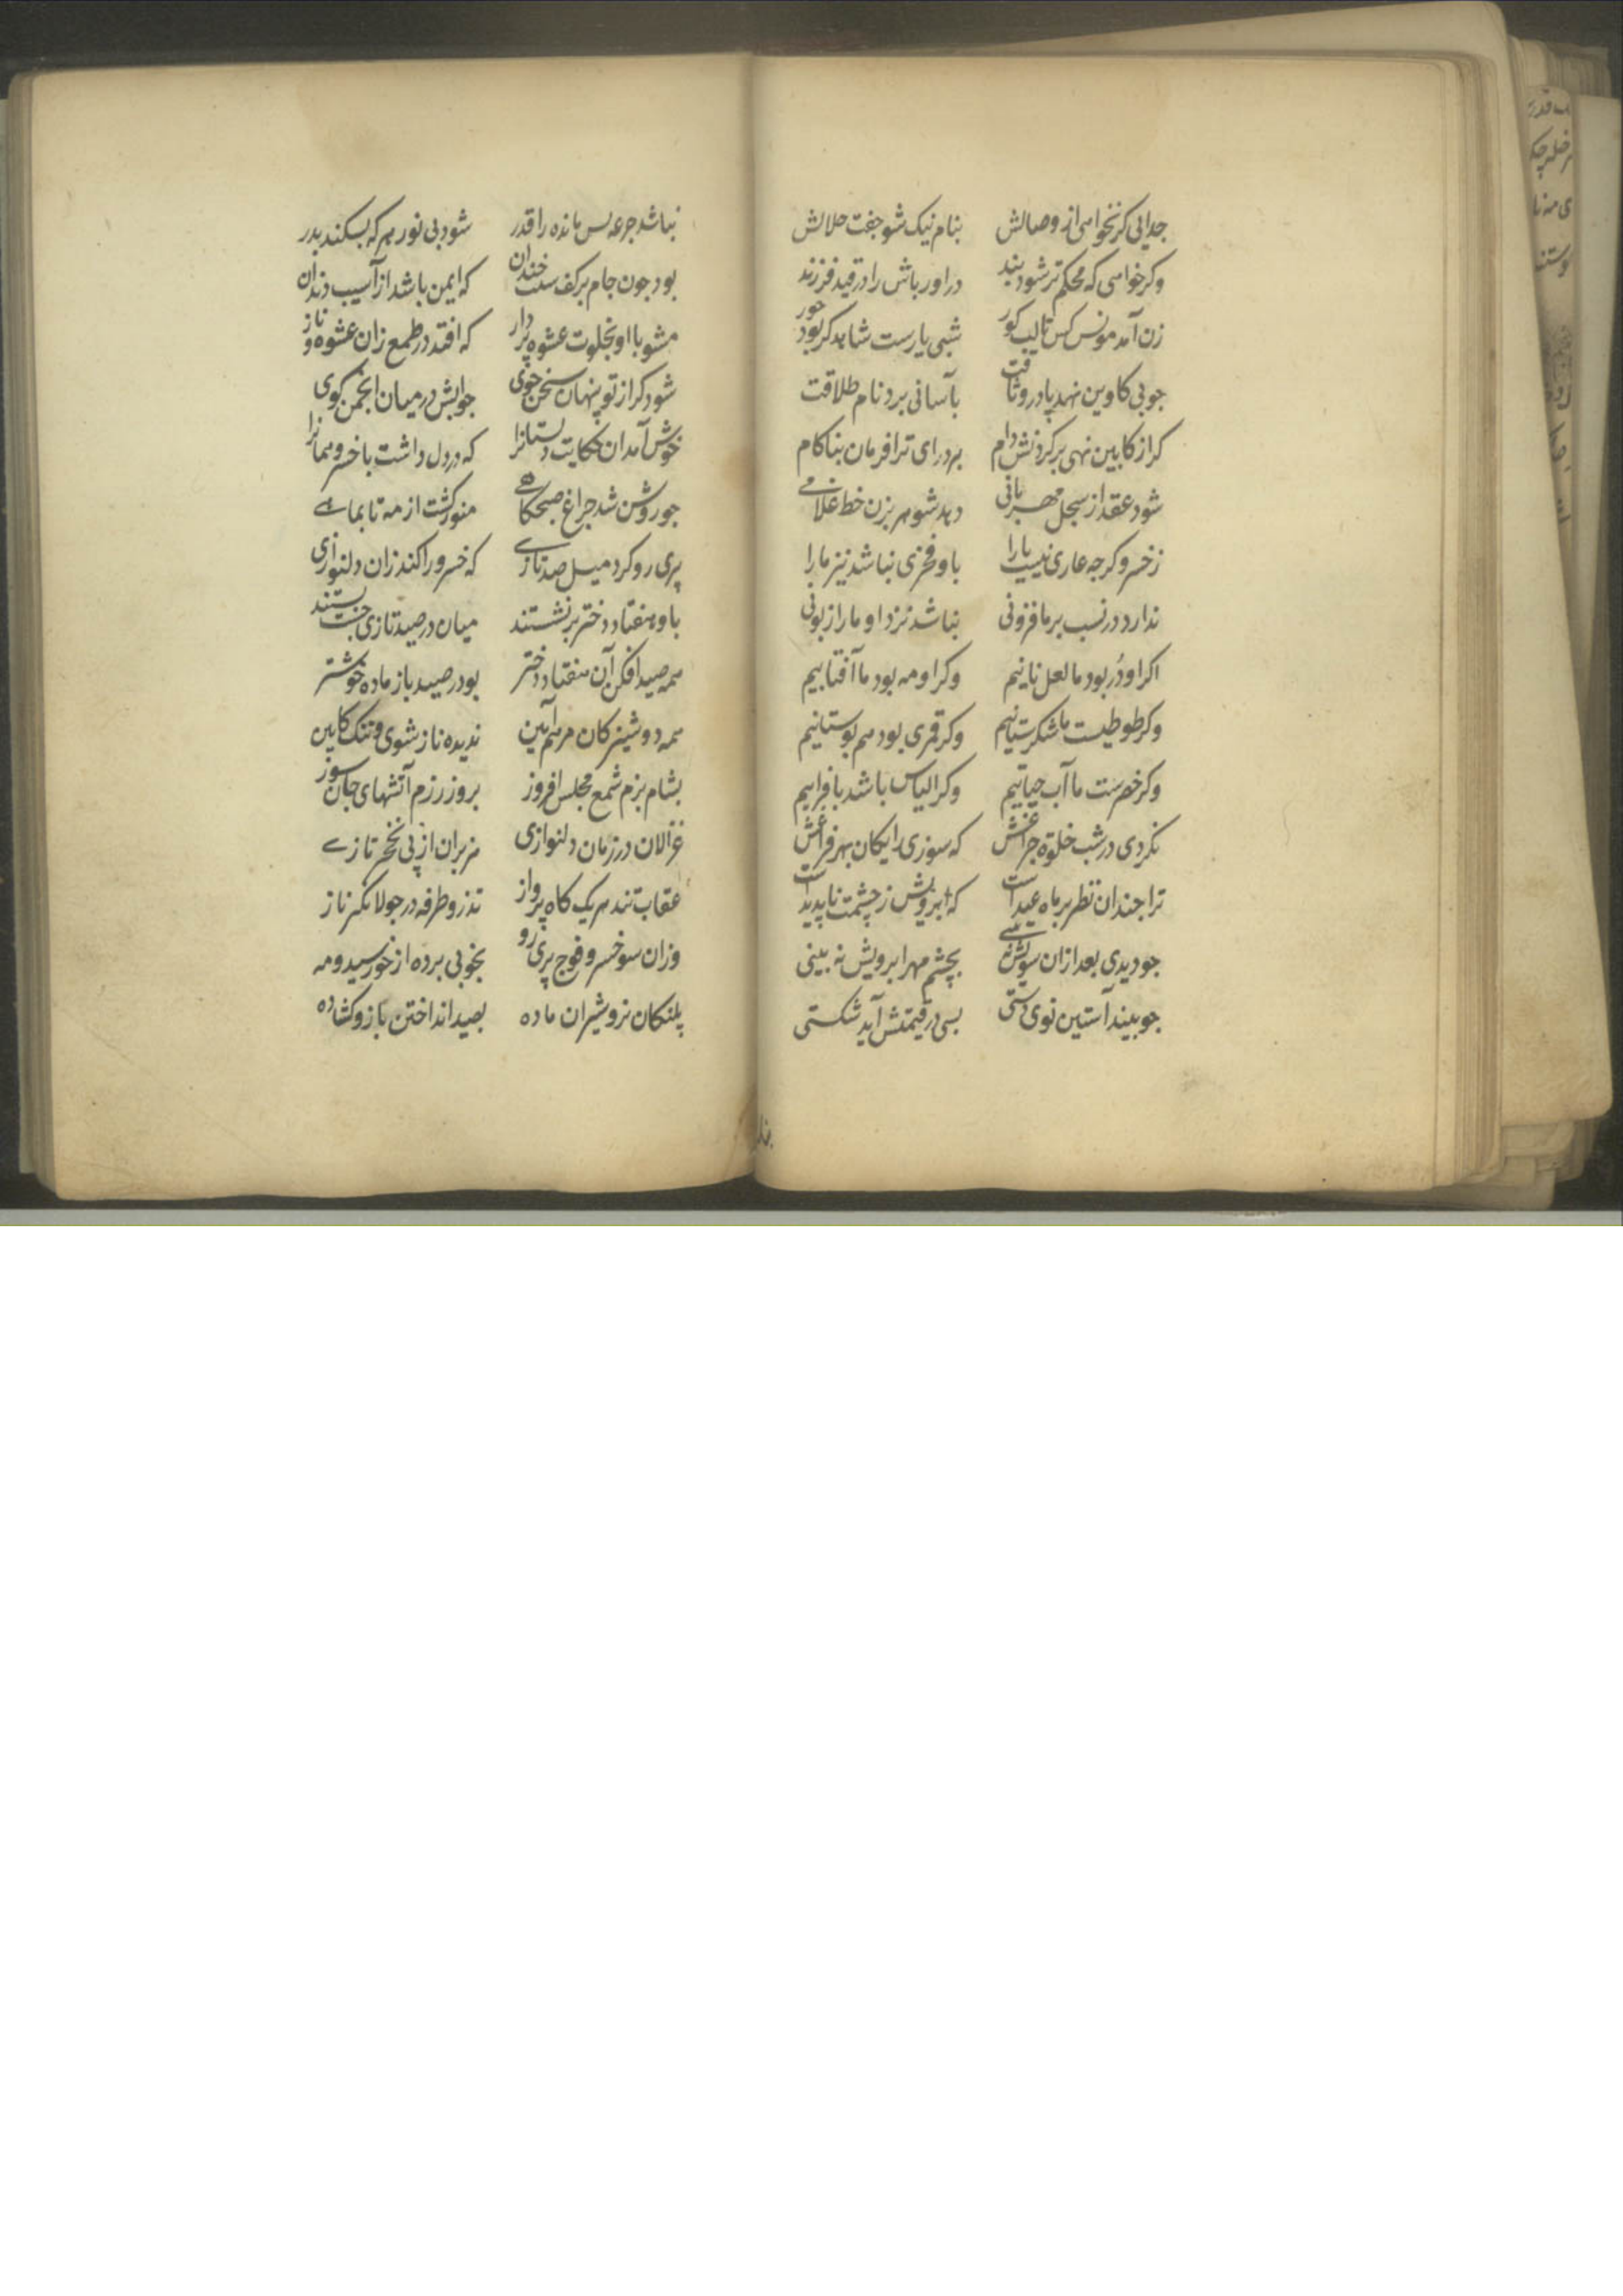 جدایی کر نخواهی از وصالش بنام نیک شو جفت حلالش
وکر خواهی که محکم تر شود بند در اور باش را در قید فرزند
زن آمد مونس کس تا لب کور شبی یارست شاهد کر بود حور
جو بی کاوین نهد پا در وثاقت بآسانی برد نام طلاقت
کر از کابین نهی بر کردنش دام برد رای ترا فرمان بناکام
شود عقد از سجل مهربانی دهد شوهر بزن خط غلامے
ز خسرو کرجه عاری نیست یارا باو فخری نباشد نیز مارا
ندارد در نسب بر ما فزونی نباشد نزد او مارا زبونی
اکر او دُر بود ما لعل نابیم وکر او مه بود ما آفتابیم
وکر طوطیست ما شکرستانیم وکر قمری بود هم بوستانیم
وکر خضرست ما آب حیاتیم وکر الیاس باشد با فراتیم
نکردی در شب خلوة جراغش که سوزی رایکان بهر فراغش
ترا جندان نظر بر ماه عیدست که ابرویش ز چشمت ناپدیدست
جو دیدی بعد ازان سویش نه بینے بچشم مهر ابرویش نه بینی
جو بیند آستین نوی دستی بسی در قیمتش آید شکستی
نباشد جرعه پس مانده را قدر شود بی نور هر که بشکند بدر
بود جون جام بر کف ست خندان که ایمن باشد از آسیب دندان
مشو با او بخلوت عشوه پردار که افتد در طمع زان عشوه و ناز
شود کر از تو پنهان سخن جوی جوابش در میان انجمن کوی
خوش آمدان حکایت دلستانرا که در دل داشت با خسرو همانرا
جو روشن شد جراغ صبحکاهے منور کشت از مه تا بماهے
پری رو کرد میل صید تازے که خسرو را کند زان دلنوازی
باو هفتاد دختر بر نشستند میان در صید تازی جست بستند
همه صید افکن آن هفتاد دختر بود در صید باز ماده خوشتر
همه دوشیزکان مریم آیین ندیده ناز شوی و ننک کابین
بشام بزم شمع مجلس افروز بروز رزم آتشهای جان سوز
غزالان در زمان دلنوازی هزبران از پی نخجر تازے
عقاب تند هر یک کاه پرواز تذرو طرفه در جولانکه ناز
وزان سو خسرو و فوج پری رو بخوبی برده از خورشید و مه
پلنکان نر و شیران ماده بصید انداختن بازو کشاده